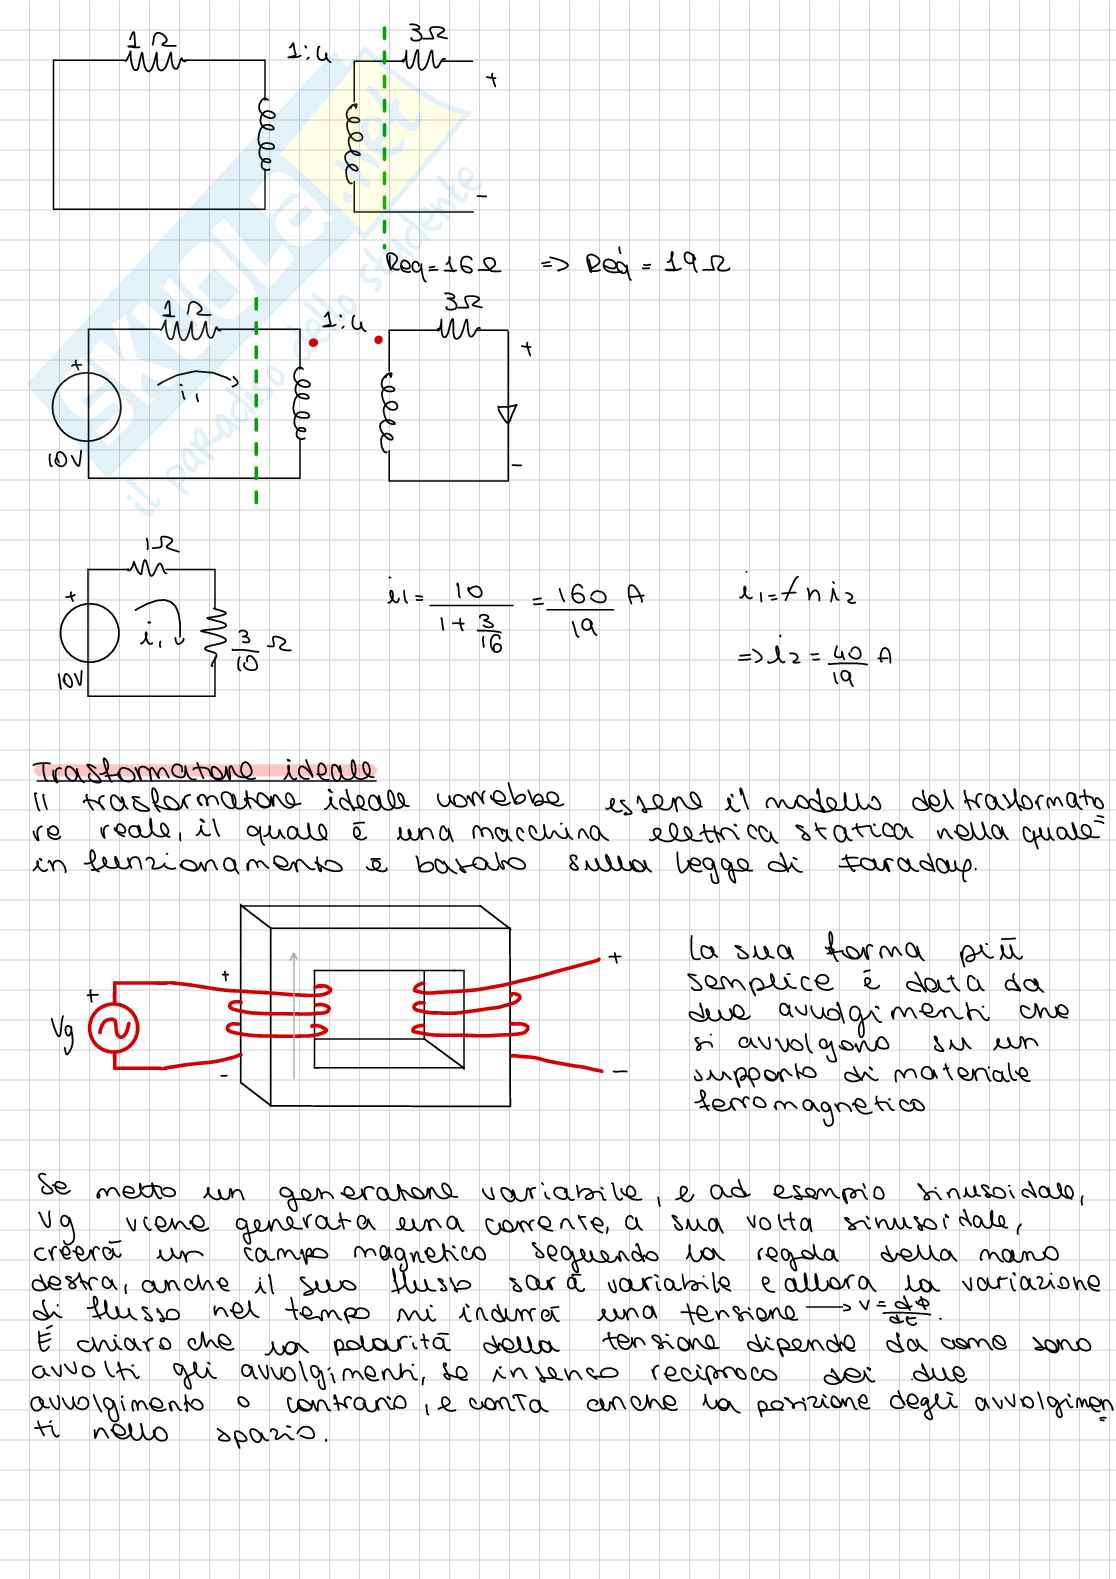 1 Ω
1:4
3Ω
+
-
Req = 16Ω => Req' = 19Ω
1 Ω
1:4
3Ω
+
+
i₁
10V
-
1Ω
+
i₁
3/10 Ω
10V
i1 = 10 / (1 + 3/16) = 160/19 A
i₁ = / n i₂
=> i₂ = 40/19 A
Trasformatore ideale
Il trasformatore ideale vorrebbe essere il modello del trasformato
re reale, il quale è una macchina elettrica statica nella quale
in funzionamento è basato sulla legge di Faraday.
+
+
Vg
-
+
-
La sua forma più
semplice è data da
due avvolgimenti che
si avvolgono su un
supporto di materiale
ferromagnetico
Se metto un generatore variabile, e ad esempio sinusoidale,
Vg viene generata una corrente, a sua volta sinusoidale,
creerà un campo magnetico seguendo la regola della mano
destra, anche il suo flusso sarà variabile e allora la variazione
di flusso nel tempo mi indurrà una tensione → v = dΦ/dt.
È chiaro che la polarità della tensione dipende da come sono
avvolti gli avvolgimenti, se in senso reciproco dei due
avvolgimento o contrario, e conta anche la posizione degli avvolgimen
ti nello spazio.
SKUOLA.net
il paradiso dello studente